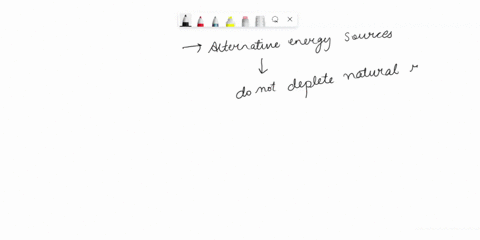 → Alternative energy sources
↓
do not deplete natural r